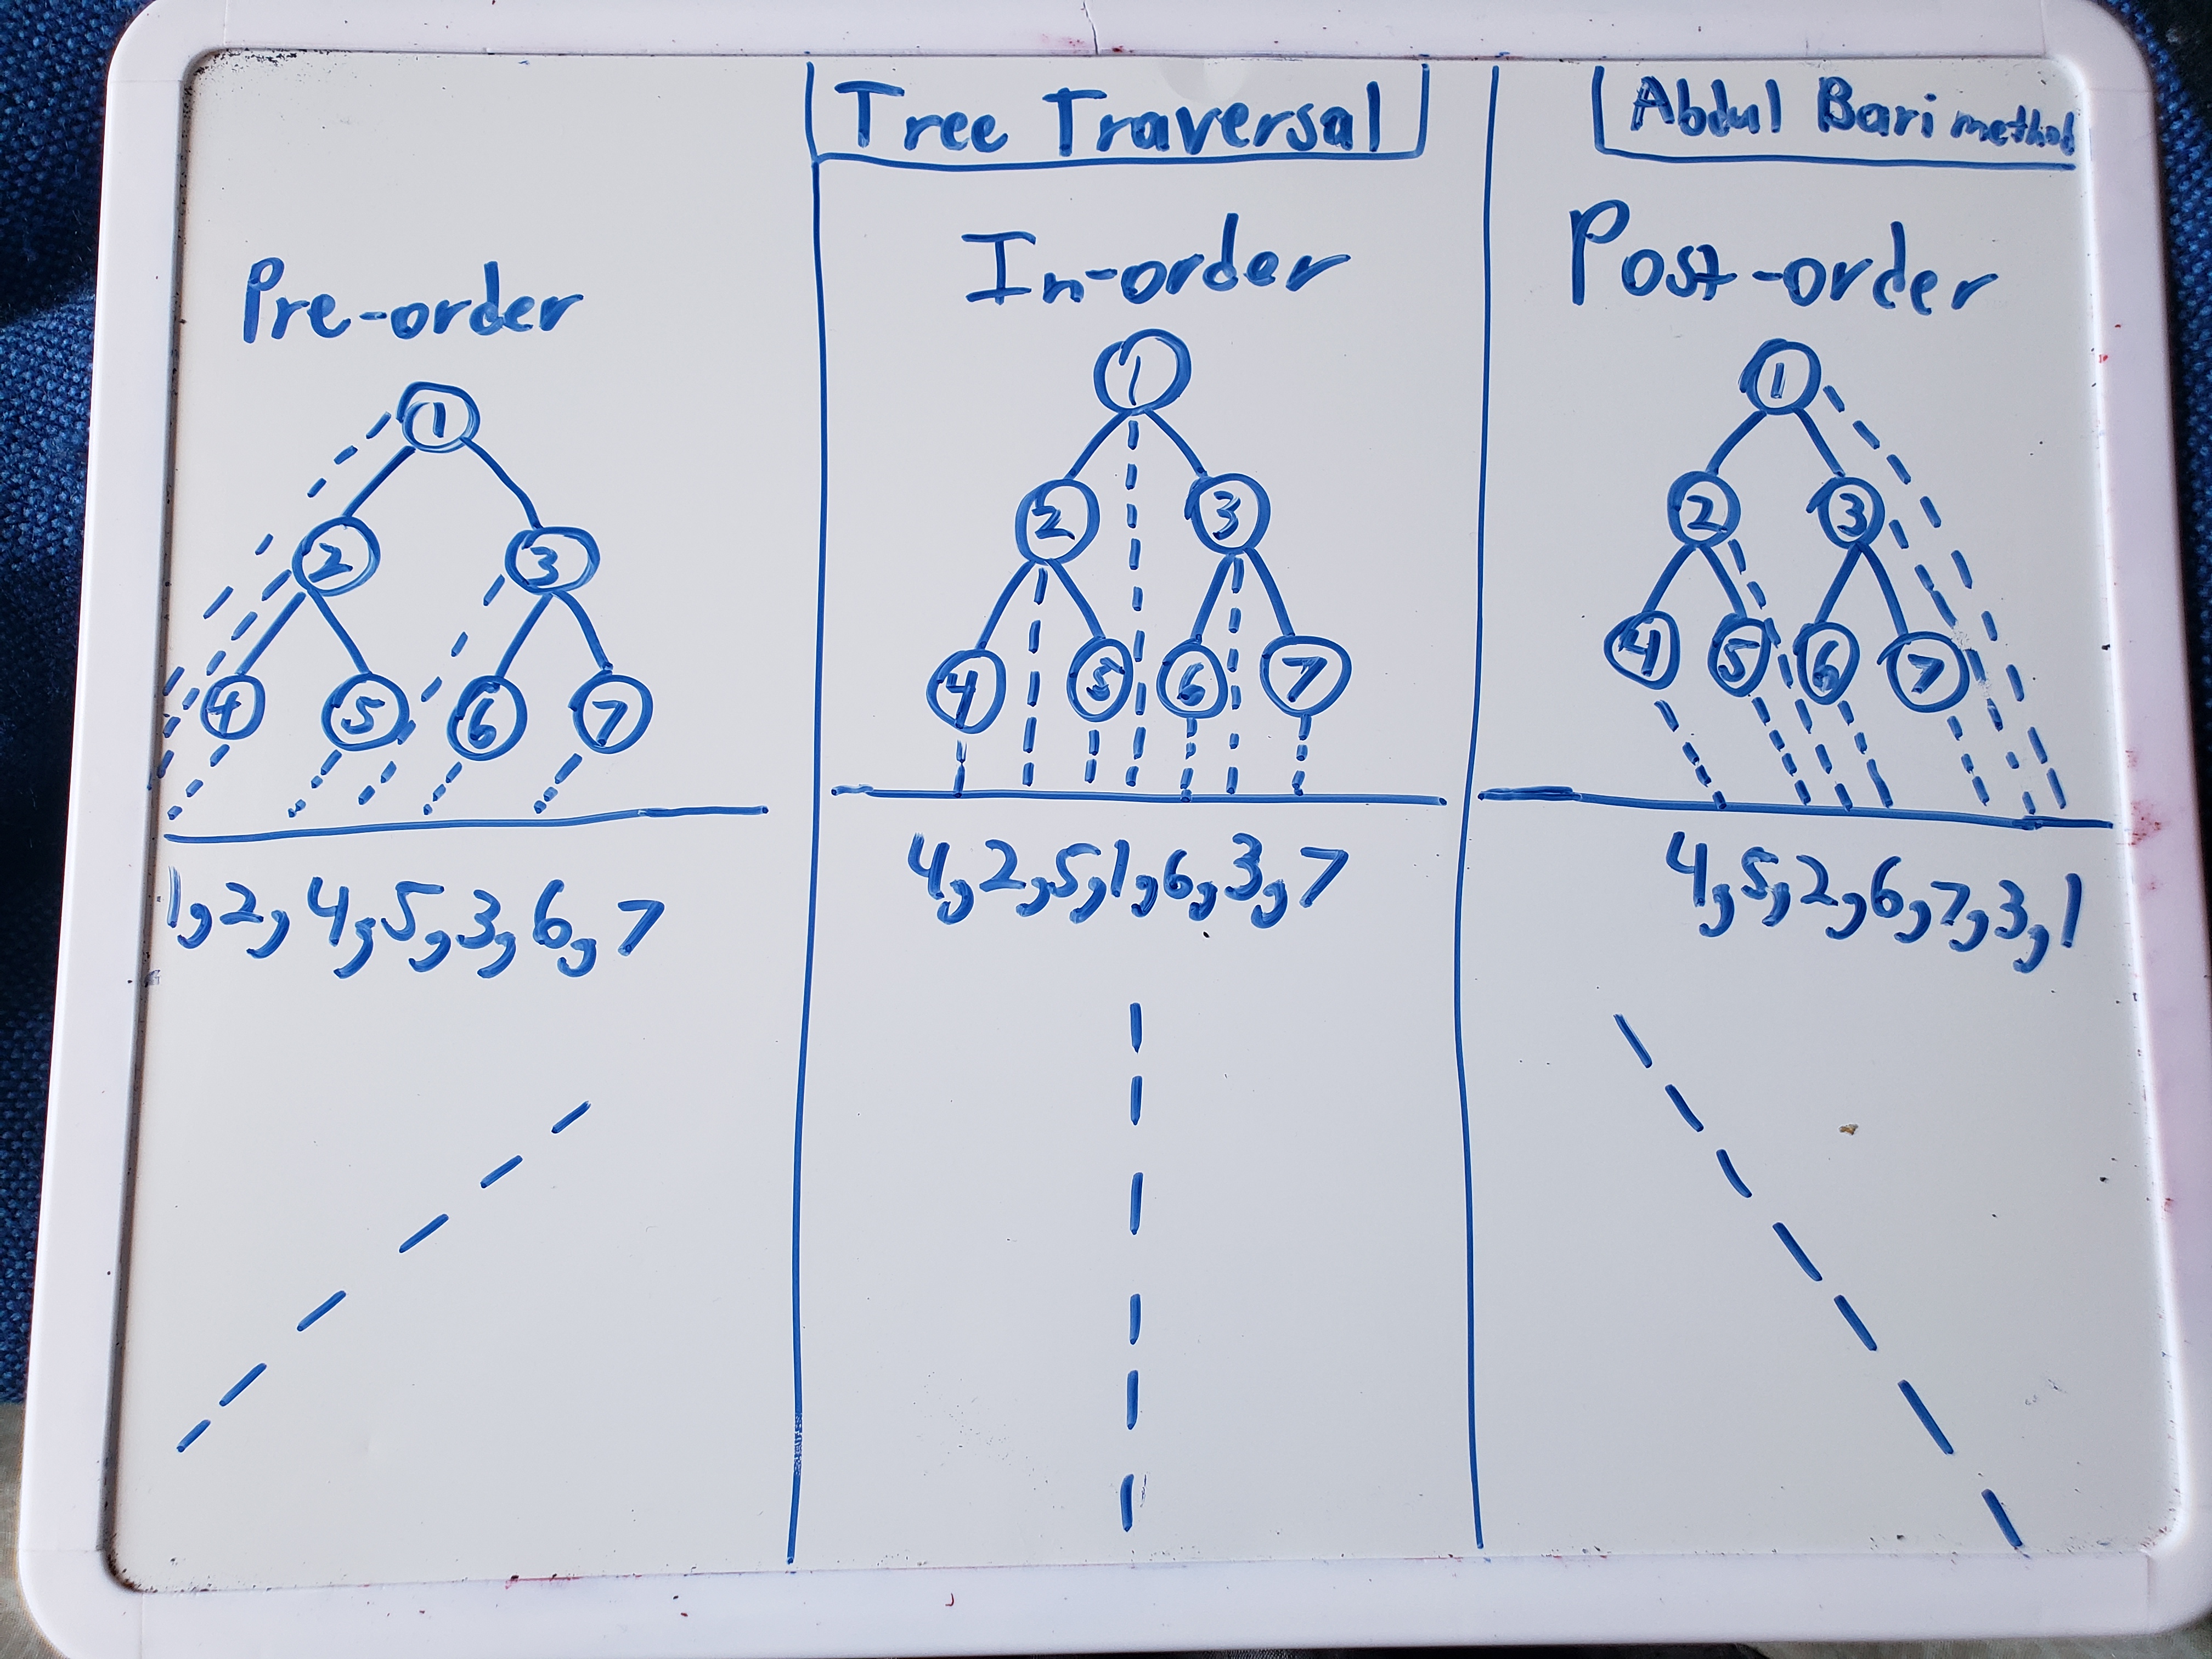 Tree Traversal
Abdul Bari method
Pre-order
1
2
3
4
5
6
7
1, 2, 4, 5, 3, 6, 7
In-order
1
2
3
4
5
6
7
4, 2, 5, 1, 6, 3, 7
Post-order
1
2
3
4
5
6
7
4, 5, 2, 6, 7, 3, 1